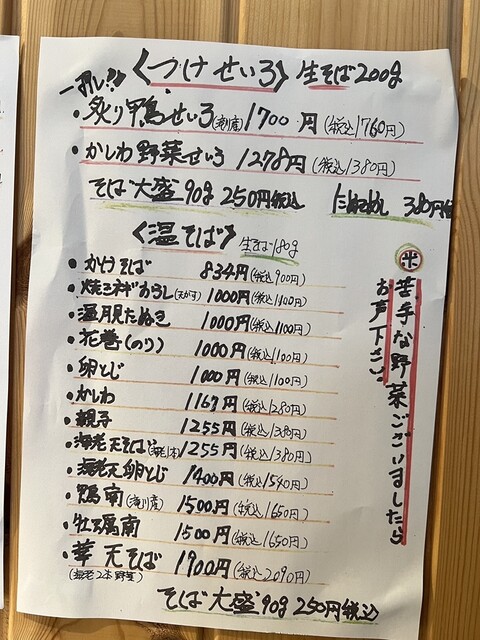 一押し!!
〈つけせいろ〉生そば200g
・炙り鴨せいろ(滝川産)1700円(税込1760円)
・かしわ野菜せいろ 1278円(税込1380円)
そば大盛90g 250円税込
たぬめし 380円
〈温そば〉生そば180g
・かけそば 834円(税込900円)
・焼ネギおろし(天かす) 1000円(税込1100円)
・温月見たぬき 1000円(税込1100円)
・花巻(のり) 1000円(税込1100円)
・卵とじ 1000円(税込1100円)
・かしわ 1167円(税込1280円)
・親子 1255円(税込1380円)
・海老天そば(海老1本)1255円(税込1380円)
・海老天卵とじ 1400円(税込1540円)
・鴨南(滝川産) 1500円(税込1650円)
・牡蠣南 1500円(税込1650円)
・華天そば 1900円(税込2090円)
(海老2本 野菜)
そば大盛90g 250円税込
※苦手な野菜ございましたら
お声下さい。